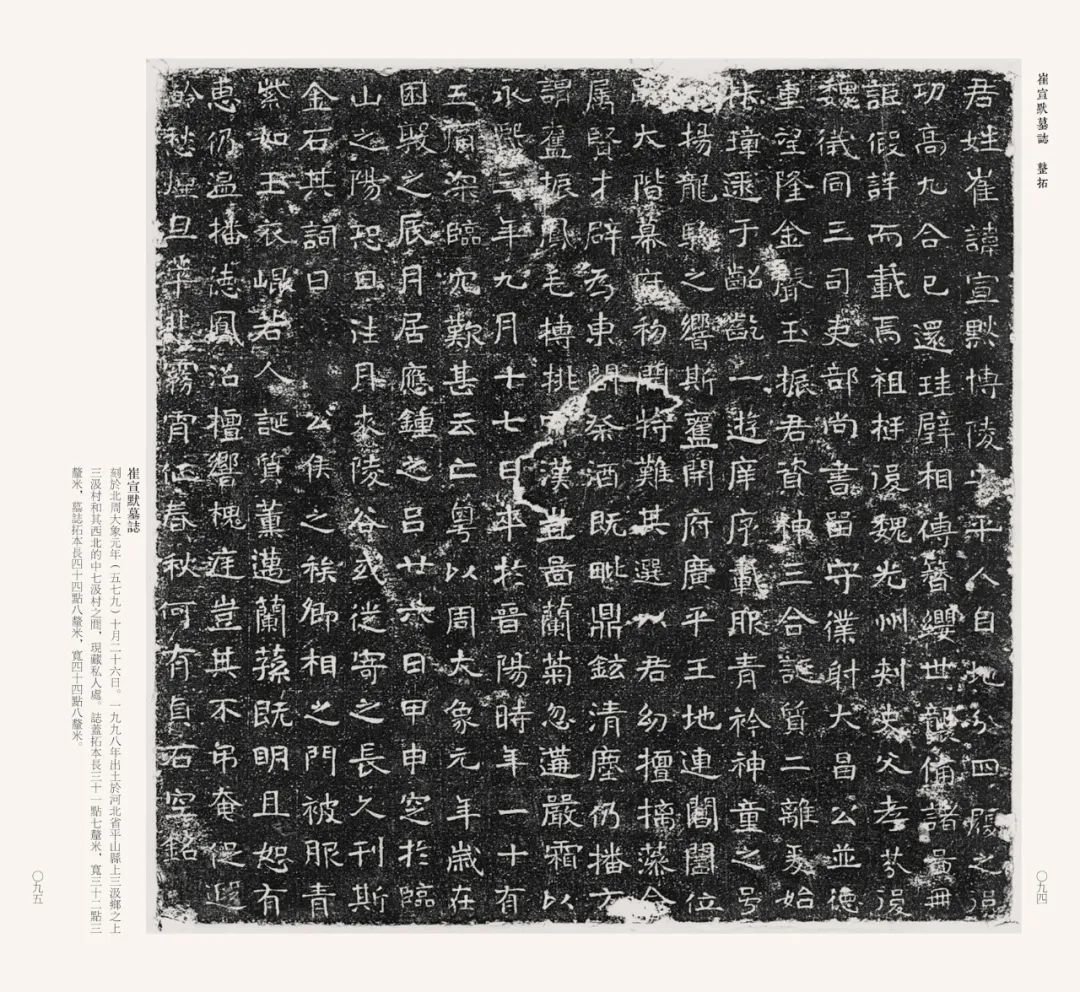 崔宣默墓誌　整拓
君姓崔諱宣默博陵安平人自地分四履之
功高九合已還珪璧相傳簪纓世襲備諸啚冊
詎假詳而載焉祖挺後魏光州刺史父孝芬後
魏儀同三司吏部尚書啚守僕射大昌公並德
重望隆金聲玉振君資神三合誕質二離爰始
璋遝于齠齔一遊庠序載服青衿神童之号
揚龍駒之響斯舊開府廣平王地連閣闈位
大階幕府初開特難其選以君幼擅摛藻令
属賢才辟為東閤祭酒既毗鼎鉉清塵仍播方
謂舊振鳳毛摶挑漢豈啚蘭菊忽遘嚴霜以
永熙二年九月十七日卒於晉陽時年一十有
五痛深臨穴歎甚云亡粵以周大象元年歲在
困敦之辰月居應鍾之呂廿六日甲申窆於臨
山之陽恐日往月來陵谷或徙寄之長久刊斯
金石其詞曰　　公侯之族卿相之門被服青
紫如玉衣㟴若人誕質薰邁蘭蓀既明且恕有
惠仍温播德鳳沼檀響槐庭豈其不弔奄促遐
愁煙旦華北霧宵征春秋何有貞石空銘
崔宣默墓誌
刻於北周大象元年（五七九）十月二十六日。一九九八年出土於河北省平山縣上三汲鄉之上
三汲村和其西北的中七汲村之間，現藏私人處。誌蓋拓本長三十一點七釐米，寬三十二點三
釐米，墓誌拓本長四十四點八釐米，寬四十四點八釐米。
〇九四
〇九五